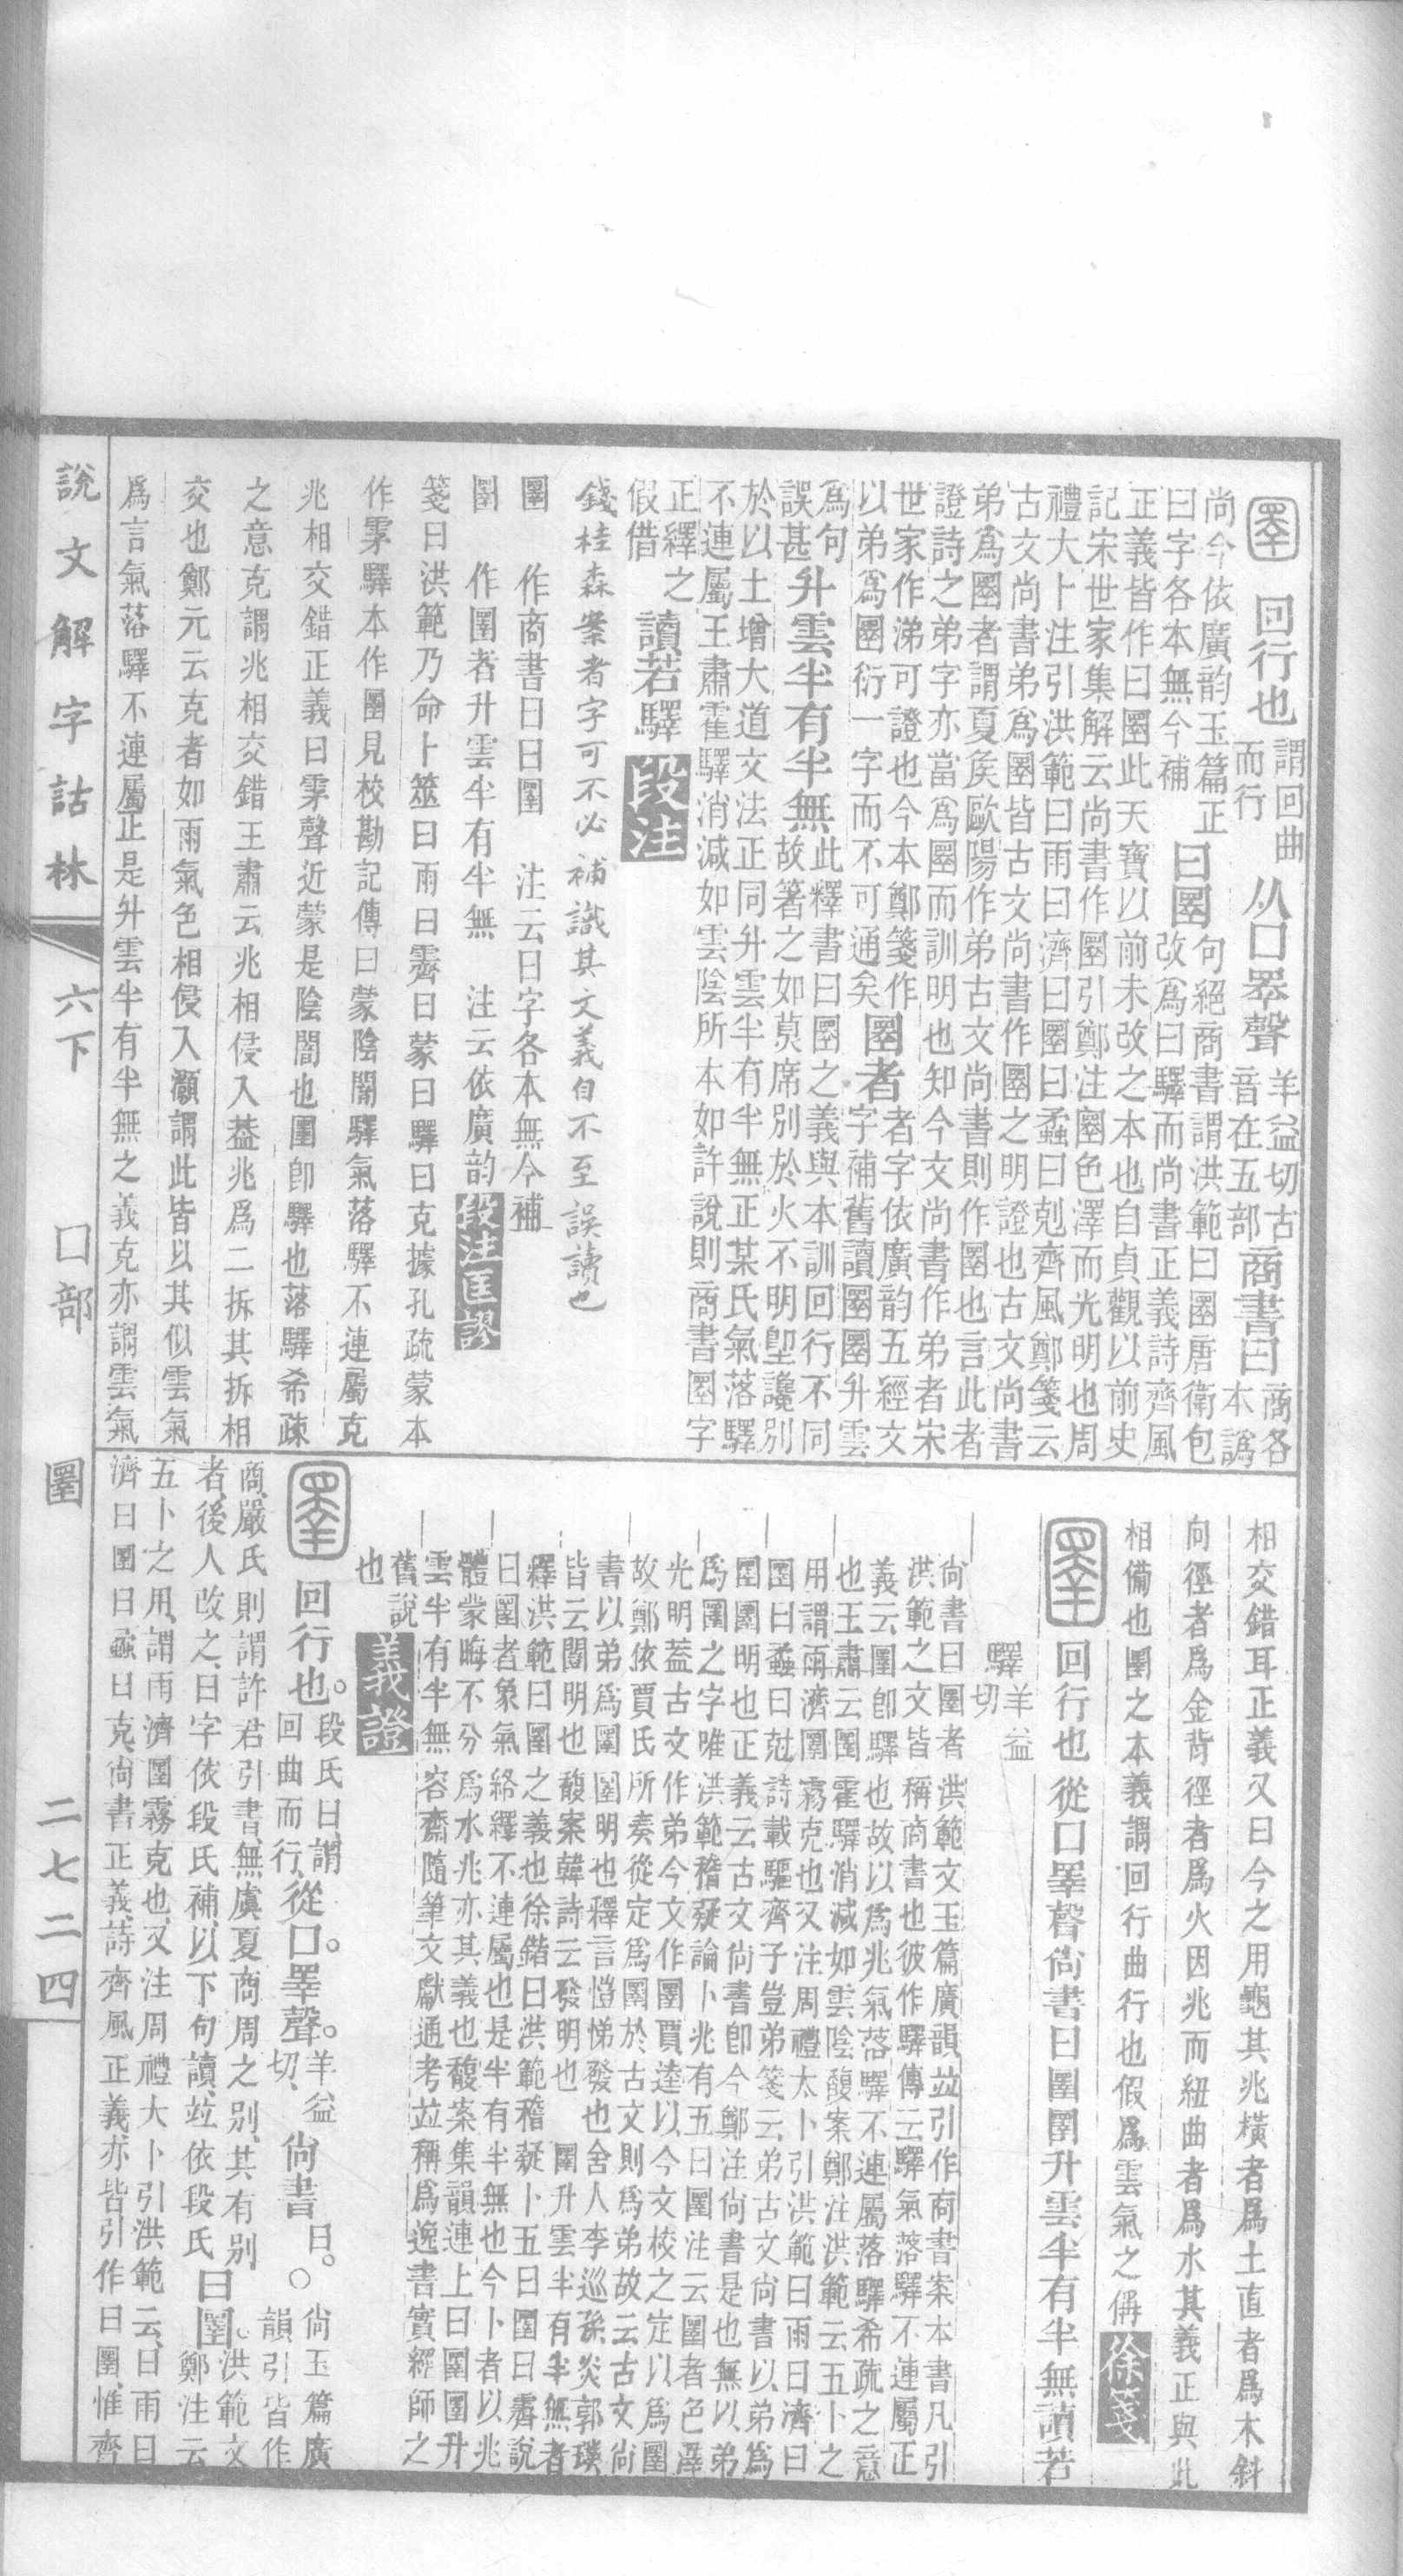 回行也
謂回曲
而行
从囗睪聲
羊益切古
音在五部
商書曰
商各
本譌
尚今依廣韵玉篇正
曰圛
句絕商書謂洪範曰圛唐衛包
曰字各本無今補
改爲曰驛而尚書正義詩齊風
正義皆作曰圛此天寶以前未改之本也自貞觀以前史
記宋世家集解云尚書作圛引鄭注圛色澤而光明也周
禮大卜注引洪範曰雨曰濟曰圛曰蟊曰剋齊風鄭箋云
古文尚書弟爲圛皆古文尚書作圛之明證也古文尚書
弟爲圛者謂夏矦歐陽作弟古文尚書則作圛也言此者
證詩之弟字亦當爲圛而訓明也知今文尚書作弟者宋
世家作涕可證也今本鄭箋作
以弟爲圛衍一字而不可通矣
圛者
者字依廣韵五經文
字補舊讀圛圛升雲
爲句
誤甚
升雲半有半無
此釋書曰圛之義與本訓回行不同
故箸之如莫席別於火不明堲讒別
於以土增大道文法正同升雲半有半無正某氏氣落驛
不連屬王肅霍驛消減如雲陰所本如許說則商書圛字
正繹之
假借
讀若驛
段注
錢桂森案者字可不必補識其文義自不至誤讀也
圛 作商書曰曰圛 注云曰字各本無今補
圛 作圛者升雲半有半無 注云依廣韵
段注匡謬
箋曰洪範乃命卜筮曰雨曰霽曰蒙曰驛曰克據孔疏蒙本
作雺驛本作圛見校勘記傳曰蒙陰闇驛氣落驛不連屬克
兆相交錯正義曰雺聲近蒙是陰闇也圛卽驛也落驛希疎
之意克謂兆相交錯王肅云兆相侵入葢兆爲二拆其拆相
交也鄭元云克者如雨氣色相侵入灝謂此皆以其似雲氣
爲言氣落驛不連屬正是升雲半有半無之義克亦謂雲氣
相交錯耳正義又曰今之用龜其兆橫者爲土直者爲木斜
向徑者爲金背徑者爲火因兆而紐曲者爲水其義正與此
相備也圛之本義謂回行曲行也假爲雲氣之偁
徐箋
回行也從囗睪聲尚書曰圛圛升雲半有半無讀若
驛
羊益
切
尚書曰圛者洪範文玉篇廣韻竝引作商書案本書凡引
洪範之文皆稱商書也彼作驛傳云驛氣落驛不連屬正
義云圛卽驛也故以爲兆氣落驛不連屬落驛希疏之意
也王肅云圛霍驛消減如雲陰馥案鄭注洪範云五卜之
用謂雨濟圛霿克也又注周禮太卜引洪範曰雨曰濟曰
圛曰蟊曰尅詩載驅齊子豈弟箋云弟古文尚書以弟爲
圛圛明也正義云古文尚書卽今鄭注尚書是也無以弟
爲圛之字唯洪範稽疑論卜兆有五曰圛注云圛者色澤
光明葢古文作弟今文作圛賈逵以今文校之定以爲圛
故鄭依賈氏所奏從定爲圛於古文則爲弟故云古文尚
書以弟爲圛圛明也釋言愷悌發也舍人李巡孫炎郭璞
皆云闓明也馥案韓詩云發明也 圛升雲半有半無者
釋洪範曰圛之義也徐鍇曰洪範稽疑卜五曰圛曰霽說
曰圛者象氣絡繹不連屬也是半有半無也今卜者以兆
體蒙晦不分爲水兆亦其義也馥案集韻連上曰圛圛升
雲半有半無容齋隨筆文獻通考竝稱爲逸書實經師之
舊說
也
義證
回行也。
段氏曰、謂
回曲而行、
從囗。睪聲。
羊益
切、
尚書曰。
○尚玉篇廣
韻引皆作
商、嚴氏則謂許君引書、無虞夏商周之別、其有別
者、後人改之、曰字依段氏補、以下句讀、竝依段氏
曰圛。
洪範文
鄭注云
五卜之用、謂雨濟圛霧克也、又注周禮大卜引洪範云、曰雨曰
濟曰圛曰蟊曰克、尚書正義、詩齊風正義、亦皆引作曰圛、惟齊
說文解字詁林
六下
囗部
圛
二七二四